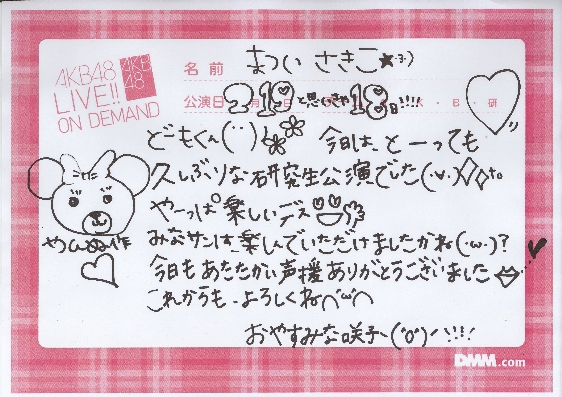 AKB48
LIVE!!
ON DEMAND
AKB
48
名前 まつい さきこ★·3·)
公演日 2月19日と思いきや18日!!!! K・B・研
どもくん(¨)
今日は、とーっても
久しぶりな研究生公演でした(·v·)
やーっぱ楽しいデス
みなサンは、楽しんでいただけましたかね(·ω·)?
今日もあたたかい声援ありがとうございました
これからも、よろしくね^ω^
おやすみな咲子~(°o°)ノ!!!
作
DMM.com